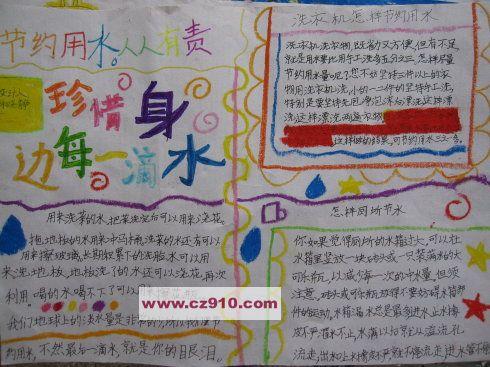 节约用水。人人有责
设计人
珍惜身
边每一滴水
用来洗菜的水,把菜洗完后可以用来浇花。
拖地板的水用来冲马桶,洗菜的水还有可以
用来擦玻璃,长期积累下的洗脸水可以用
来洗地板,地板洗了的水还可以浇花。再次
利用。喝的水喝不了可以
我们地球上的淡水量是非常的
约用水,不然最后一滴水,就是你的眼泪。
洗衣机怎样节约用水
洗衣机洗衣物,既省力又方便,但有不足
就是用水要比用手工洗多五分之三,怎样尽量
节约用水量呢?您不妨坚持三件以上的衣
物用洗衣机洗,小的一二件的坚持手工洗,
特别是要坚持先
洗这样漂洗两遍衣物
这样做的结果,可节约用水三之一。
怎样厕所节水
你如果觉得厕所的水箱过大,可以在
水箱里竖放一块砖头或一只装满水的大
可乐瓶,以减少每一次的冲水量。但须
注意,砖头或可乐瓶放得不要妨碍水箱部
件的运动。水箱漏水总是最多,进水止水橡
皮不严,灌水不止,水满以后就从溢流孔
流走;出水口止水橡皮不严,就不停流走,进水管不停
www.cz910.com